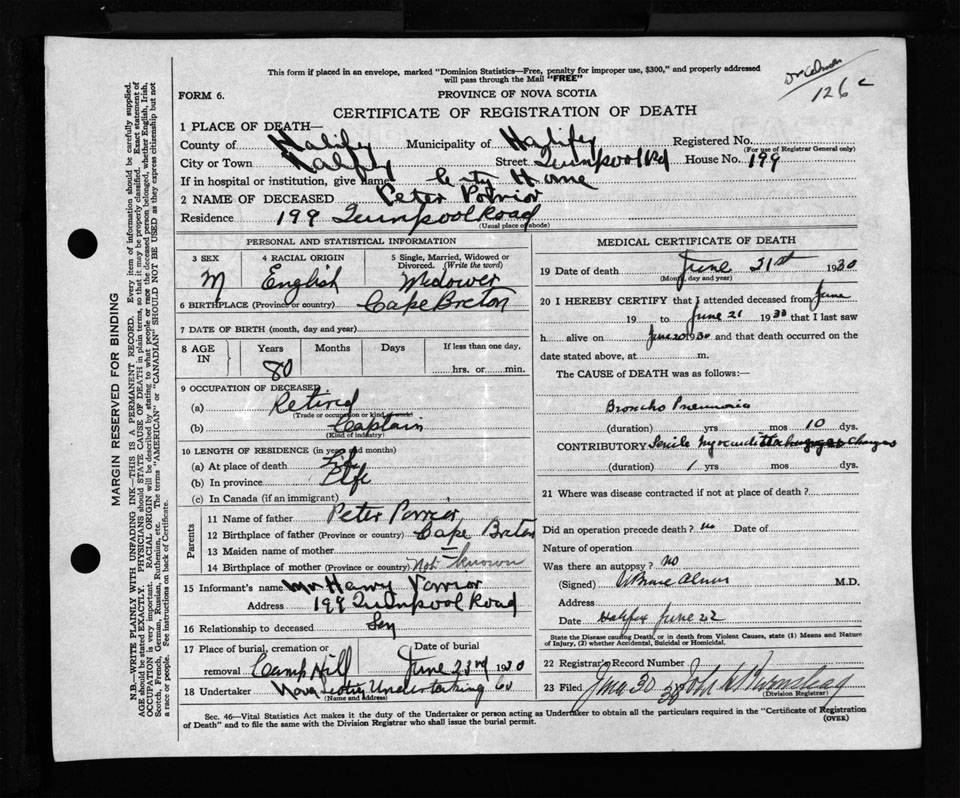 This form if placed in an envelope, marked "Dominion Statistics—Free, penalty for improper use, $300," and properly addressed
will pass through the Mail "FREE"
126 c
FORM 6.
PROVINCE OF NOVA SCOTIA
CERTIFICATE OF REGISTRATION OF DEATH
1 PLACE OF DEATH—
County of Halifx Municipality of Halifx Registered No.
(For use of Registrar General only)
City or Town Halifx Street Quinpool Rd House No. 199
If in hospital or institution, give name City Home
2 NAME OF DECEASED Peter Poirior
Residence 199 Quinpool Road
(Usual place of abode)
PERSONAL AND STATISTICAL INFORMATION
3 SEX 4 RACIAL ORIGIN 5 Single, Married, Widowed or Divorced. (Write the word)
M English Widower
6 BIRTHPLACE (Province or country) Cape Breton
7 DATE OF BIRTH (month, day and year)
8 AGE IN Years Months Days If less than one day,
80 hrs. or min.
9 OCCUPATION OF DECEASED
(a) Retired
(Trade or occupation or kind of work)
(b) Captain
(Kind of industry)
10 LENGTH OF RESIDENCE (in years and months)
(a) At place of death Life
(b) In province Life
(c) In Canada (if an immigrant)
Parents
11 Name of father Peter Porrier
12 Birthplace of father (Province or country) Cape Breton
13 Maiden name of mother —
14 Birthplace of mother (Province or country) Not Known
15 Informant's name Mr Henry Porrior
Address 199 Quinpool Road
16 Relationship to deceased Son
17 Place of burial, cremation or
removal Camp Hill June 23rd 1930
18 Undertaker Nova Scotia Undertaking Co
(Name and address)
MEDICAL CERTIFICATE OF DEATH
19 Date of death June 21st 1930
(Month, day and year)
20 I HEREBY CERTIFY that I attended deceased from June
19 to June 21 1930 that I last saw
h alive on June 20 1930 and that death occurred on the
date stated above, at m.
The CAUSE of DEATH was as follows:—
Broncho Pneumonia
(duration) yrs mos 10 dys.
CONTRIBUTORY Senile myocarditis changes
(duration) 1 yrs mos dys.
21 Where was disease contracted if not at place of death?
Did an operation precede death? no Date of
Nature of operation
Was there an autopsy? no
(Signed) M.D.
Address
Date Halifax June 22
State the Disease causing Death, or in death from Violent Causes, state (1) Means and Nature
of Injury, (2) whether Accidental, Suicidal or Homicidal.
22 Registrar's Record Number
23 Filed June 30 30 John
(Division Registrar)
Sec. 46—Vital Statistics Act makes it the duty of the Undertaker or person acting as Undertaker to obtain all the particulars required in the "Certificate of Registration
of Death" and to file the same with the Division Registrar who shall issue the burial permit.
(OVER)
MARGIN RESERVED FOR BINDING
N.B.—WRITE PLAINLY WITH UNFADING INK—THIS IS A PERMANENT RECORD. Every item of information should be carefully supplied.
AGE should be stated EXACTLY. PHYSICIANS should STATE CAUSE OF DEATH in plain terms, so that it may be properly classified. Exact statement of
OCCUPATION is very important. RACIAL ORIGIN will be described by stating to what people or race the deceased person belonged, whether English, Irish,
Scotch, French, German, Russian, Ruthenian, etc. The terms "AMERICAN" or "CANADIAN" SHOULD NOT BE USED as they express citizenship but not
a race or people. See instructions on back of Certificate.